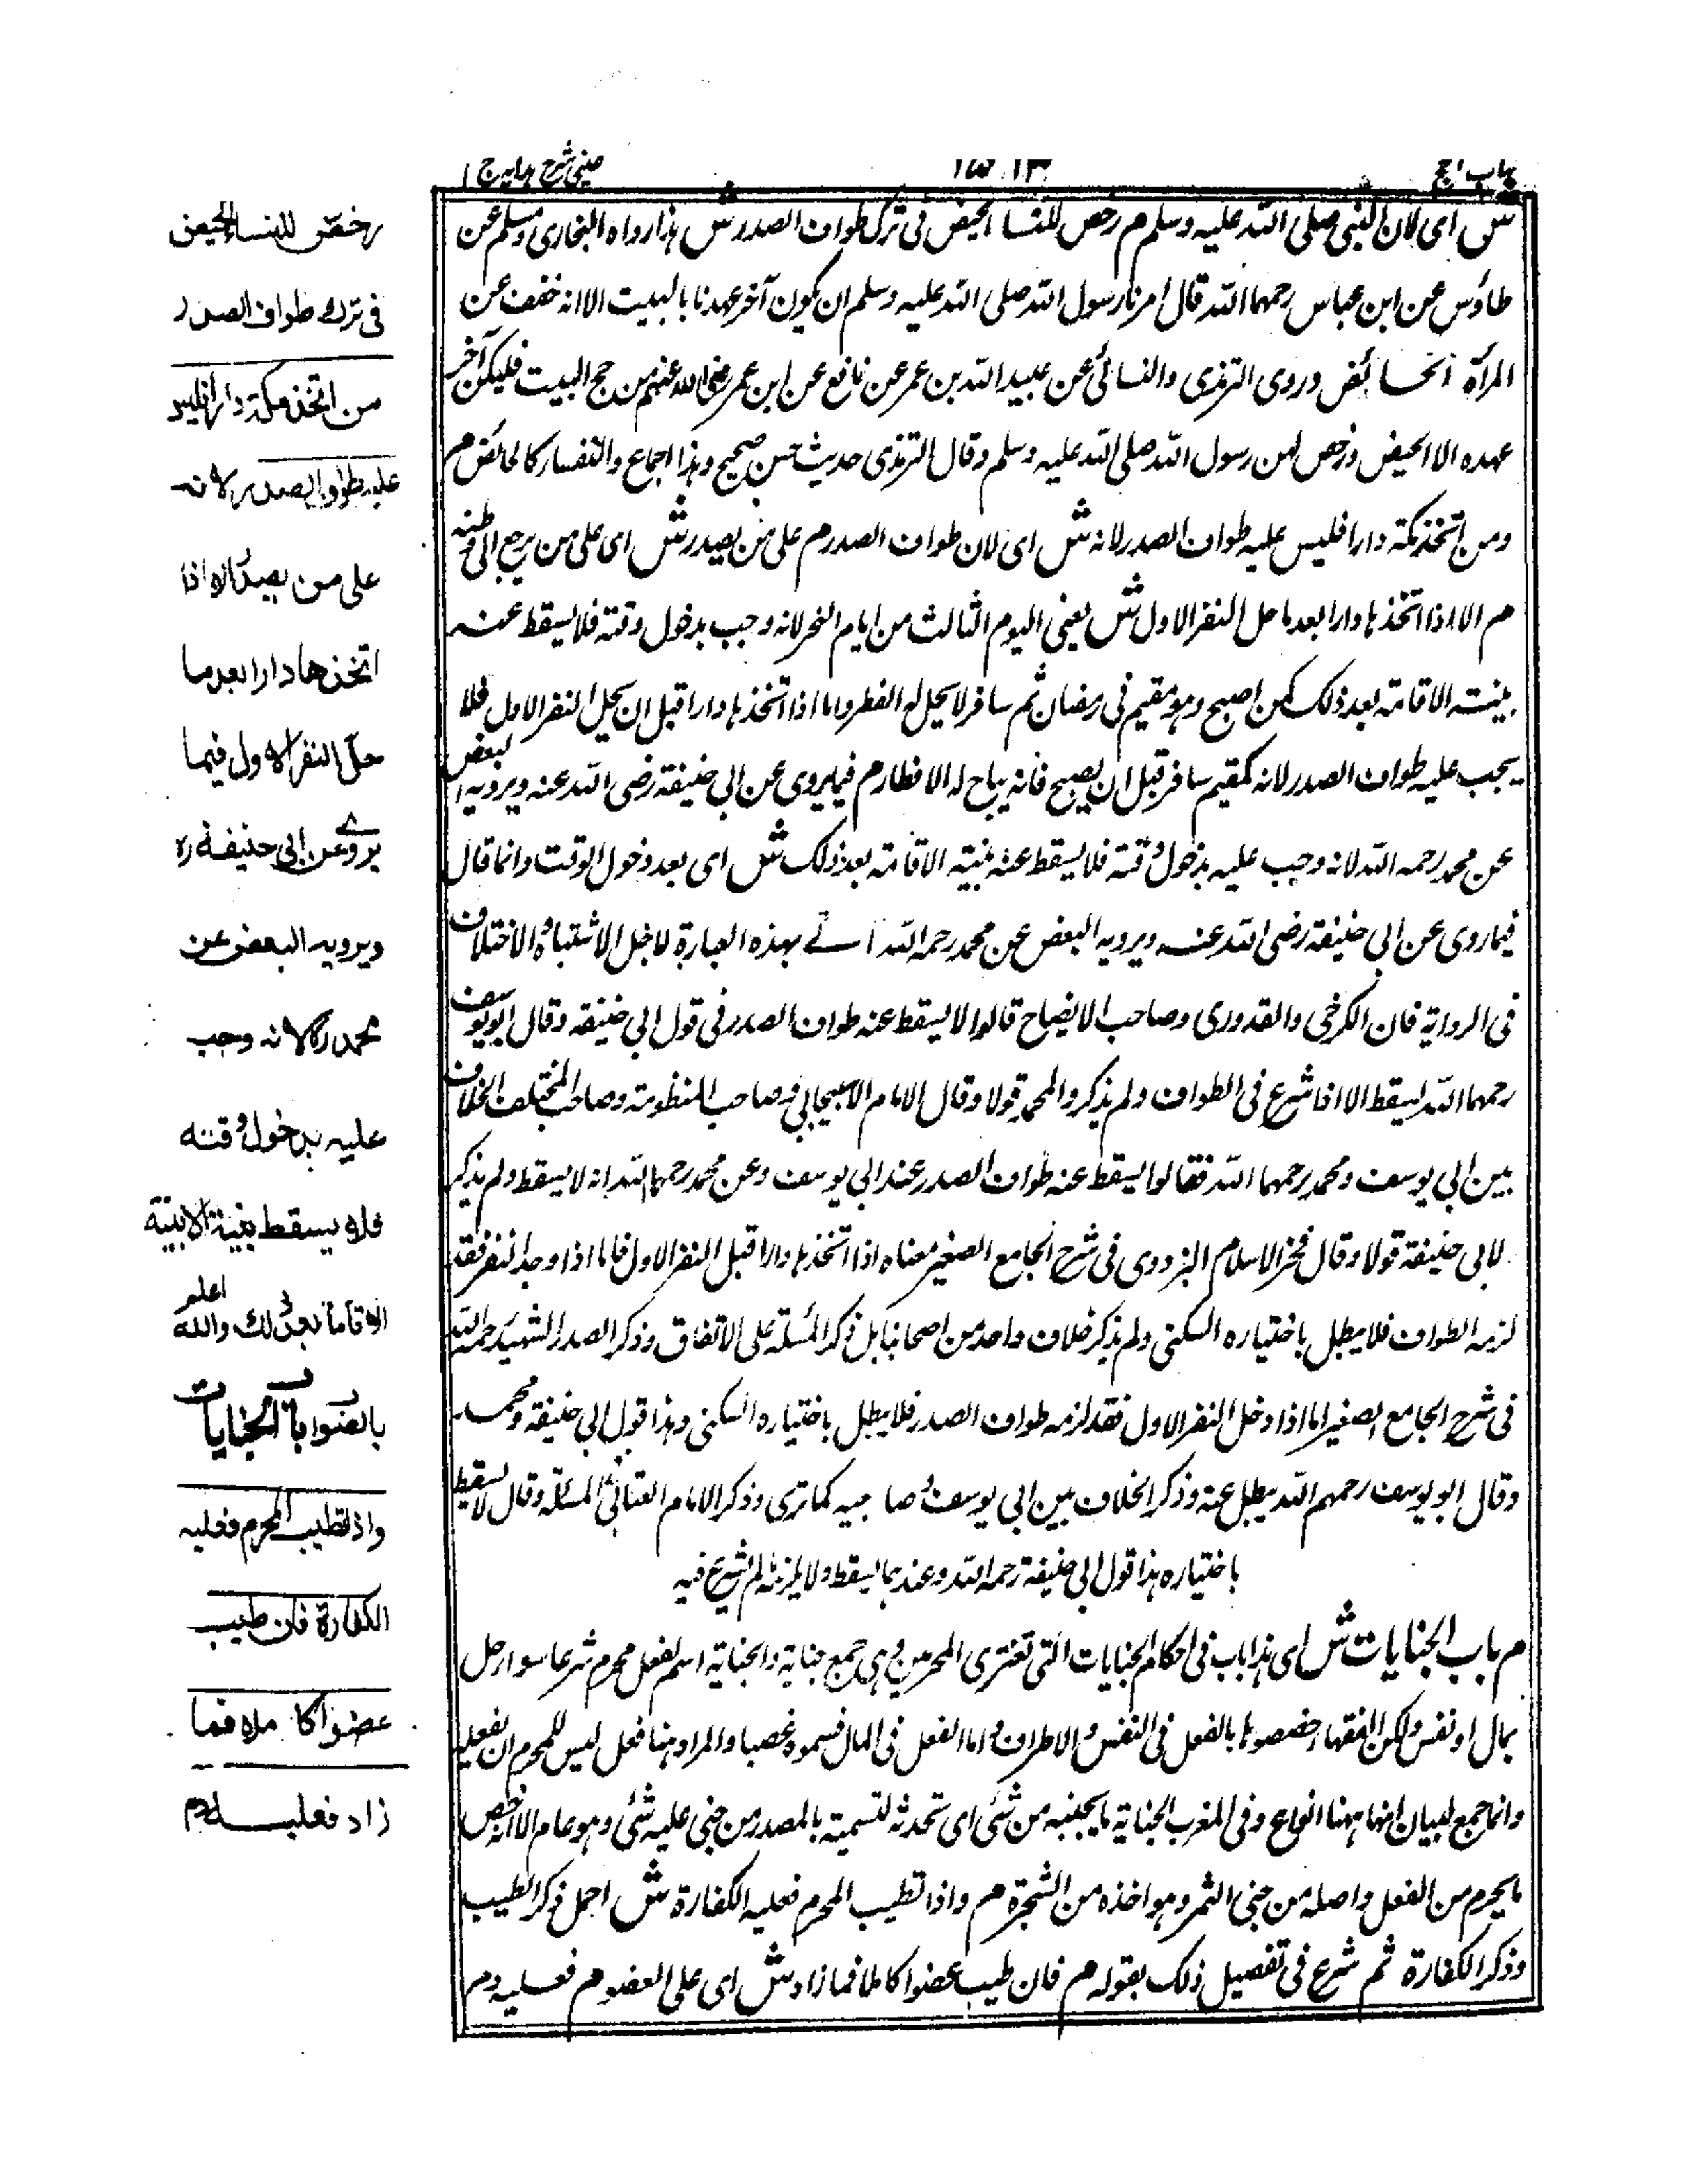 باب الحج
عینی شرح ہدایہ ج ۱
ش ای لان النبی صلی اللہ علیہ وسلم م رخص للنسا الحیض فی ترک طواف الصدر ش ہذا رواہ البخاری ومسلم عن
طاؤس عن ابن عباس رحمہما اللہ قال امرنا رسول اللہ صلی اللہ علیہ وسلم ان یکون آخر عہدنا بالبیت الا انہ خفف عن
المرأۃ الحائض وروی الترمذی والنسائی عن عبید اللہ بن عمر عن نافع عن ابن عمر رضی اللہ عنہم من حج البیت فلیکن آخر
عہدہ الا الحیض ورخص لہن رسول اللہ صلی اللہ علیہ وسلم وقال الترمذی حدیث حسن صحیح وہذا اجماع والنفساء کالحائض م
ومن اتخذ مکۃ دارا فلیس علیہ طواف الصدر لانہ ش ای لان طواف الصدر م علی من یصدر ش ای علی من یرجع الی وطنہ
م الا اذا اتخذہا دارا بعد ما حل النفر الاول ش یعنی الیوم الثالث من ایام النحر لانہ وجب بدخول وقتہ فلا یسقط عنہ
بنیتہ الاقامۃ بعد ذلک کمن اصبح وہو مقیم فی رمضان ثم سافر لا یحل لہ الفطر واما اذا اتخذہا دارا قبل ان یحل النفر الاول فلا
یجب علیہ طواف الصدر لانہ کمقیم سافر قبل ان یصبح فانہ یباح لہ الافطار م فیما یروی عن ابی حنیفۃ رضی اللہ عنہ ویرویہ البعض
عن محمد رحمہ اللہ لانہ وجب علیہ بدخول وقتہ فلا یسقط عنہ بنیۃ الاقامۃ بعد ذلک ش ای بعد دخول الوقت وانما قال
فیما روی عن ابی حنیفۃ رضی اللہ عنہ ویرویہ البعض عن محمد رحمہ اللہ اتی بہذہ العبارۃ لاجل الاشتباہ والاختلاف
فی الروایۃ فان الکرخی والقدوری وصاحب الایضاح قالوا لا یسقط عنہ طواف الصدر فی قول ابی حنیفہ وقال ابو یوسف
رحمہما اللہ یسقط الا اذا شرع فی الطواف ولم یذکروا لمحمد قولا وقال الامام الاسبیجابی وصاحب المنظومۃ وصاحب المختلف الخلاف
بین ابی یوسف ومحمد رحمہما اللہ فقالوا یسقط عنہ طواف الصدر عند ابی یوسف وعن محمد رحمہما اللہ انہ لا یسقط ولم یذکر
لابی حنیفۃ قولا وقال فخر الاسلام البزدوی فی شرح الجامع الصغیر معناہ اذا اتخذہا دارا قبل النفر الاول فاما اذا وجد النفر فقد
لزمہ الطواف فلا یبطل باختیارہ السکنی ولم یذکر خلاف واحد من اصحابنا بل ذکر المسئلۃ علی الاتفاق وذکر الصدر الشہید رحمہ اللہ
فی شرح الجامع الصغیر اما اذا دخل النفر الاول فقد لزمہ طواف الصدر فلا یبطل باختیارہ السکنی وہذا قول ابی حنیفۃ ومحمد
وقال ابو یوسف رحمہم اللہ یبطل عنہ وذکر الخلاف بین ابی یوسف وصاحبیہ کما تری وذکر الامام العتابی المسئلۃ وقال لا یسقط
باختیارہ ہذا قول ابی حنیفۃ رحمہ اللہ وعندہما یسقط ولا یلزمہ لم یشرع فیہ
م باب الجنایات ش ای ہذا باب فی احکام الجنایات التی تعتری المحرمین وہی جمع جنایۃ والجنایۃ اسم لفعل محرم شرعا سواء حل
بمال او نفس ولکن الفقہاء خصصوہا بالفعل فی النفس والاطراف واما الفعل فی المال فسموہ غصبا والمراد ہنا فعل لیس للمحرم ان یفعلہ
وانما جمع لبیان انہا ہہنا انواع وفی المغرب الجنایۃ ما یجنیہ من شئ ای تحدثہ تسمیۃ بالمصدر من جنی علیہ شئ وہو عام الا انہ خص
ما یحرم من الفعل واصلہ من جنی الثمر وہو اخذہ من الشجرۃ م واذا تطیب المحرم فعلیہ الکفارۃ ش اجمل ذکر الطیب
وذکر الکفارۃ ثم شرع فی تفصیل ذلک بقولہ م فان طیب عضوا کاملا فما زاد ش ای علی العضو م فعلیہ دم
رخص للنساء الحیض
فی ترک طواف الصدر
من اتخذ مکۃ دارا فلیس
علیہ طواف الصدر لانہ
علی من یصدر الا اذا
اتخذها دارا بعد ما
حل النفر الاول فیما
یروی عن ابی حنیفۃ رہ
ویرویہ البعض عن
محمد رہ لانہ وجب
علیہ بدخول وقتہ
فلا یسقط بنیۃ
الاقامۃ بعد ذلک واللہ اعلم
بالصواب باب الجنایات
واذا تطیب المحرم فعلیہ
الکفارۃ فان طیب
عضوا کاملا فما
زاد فعلیہ دم